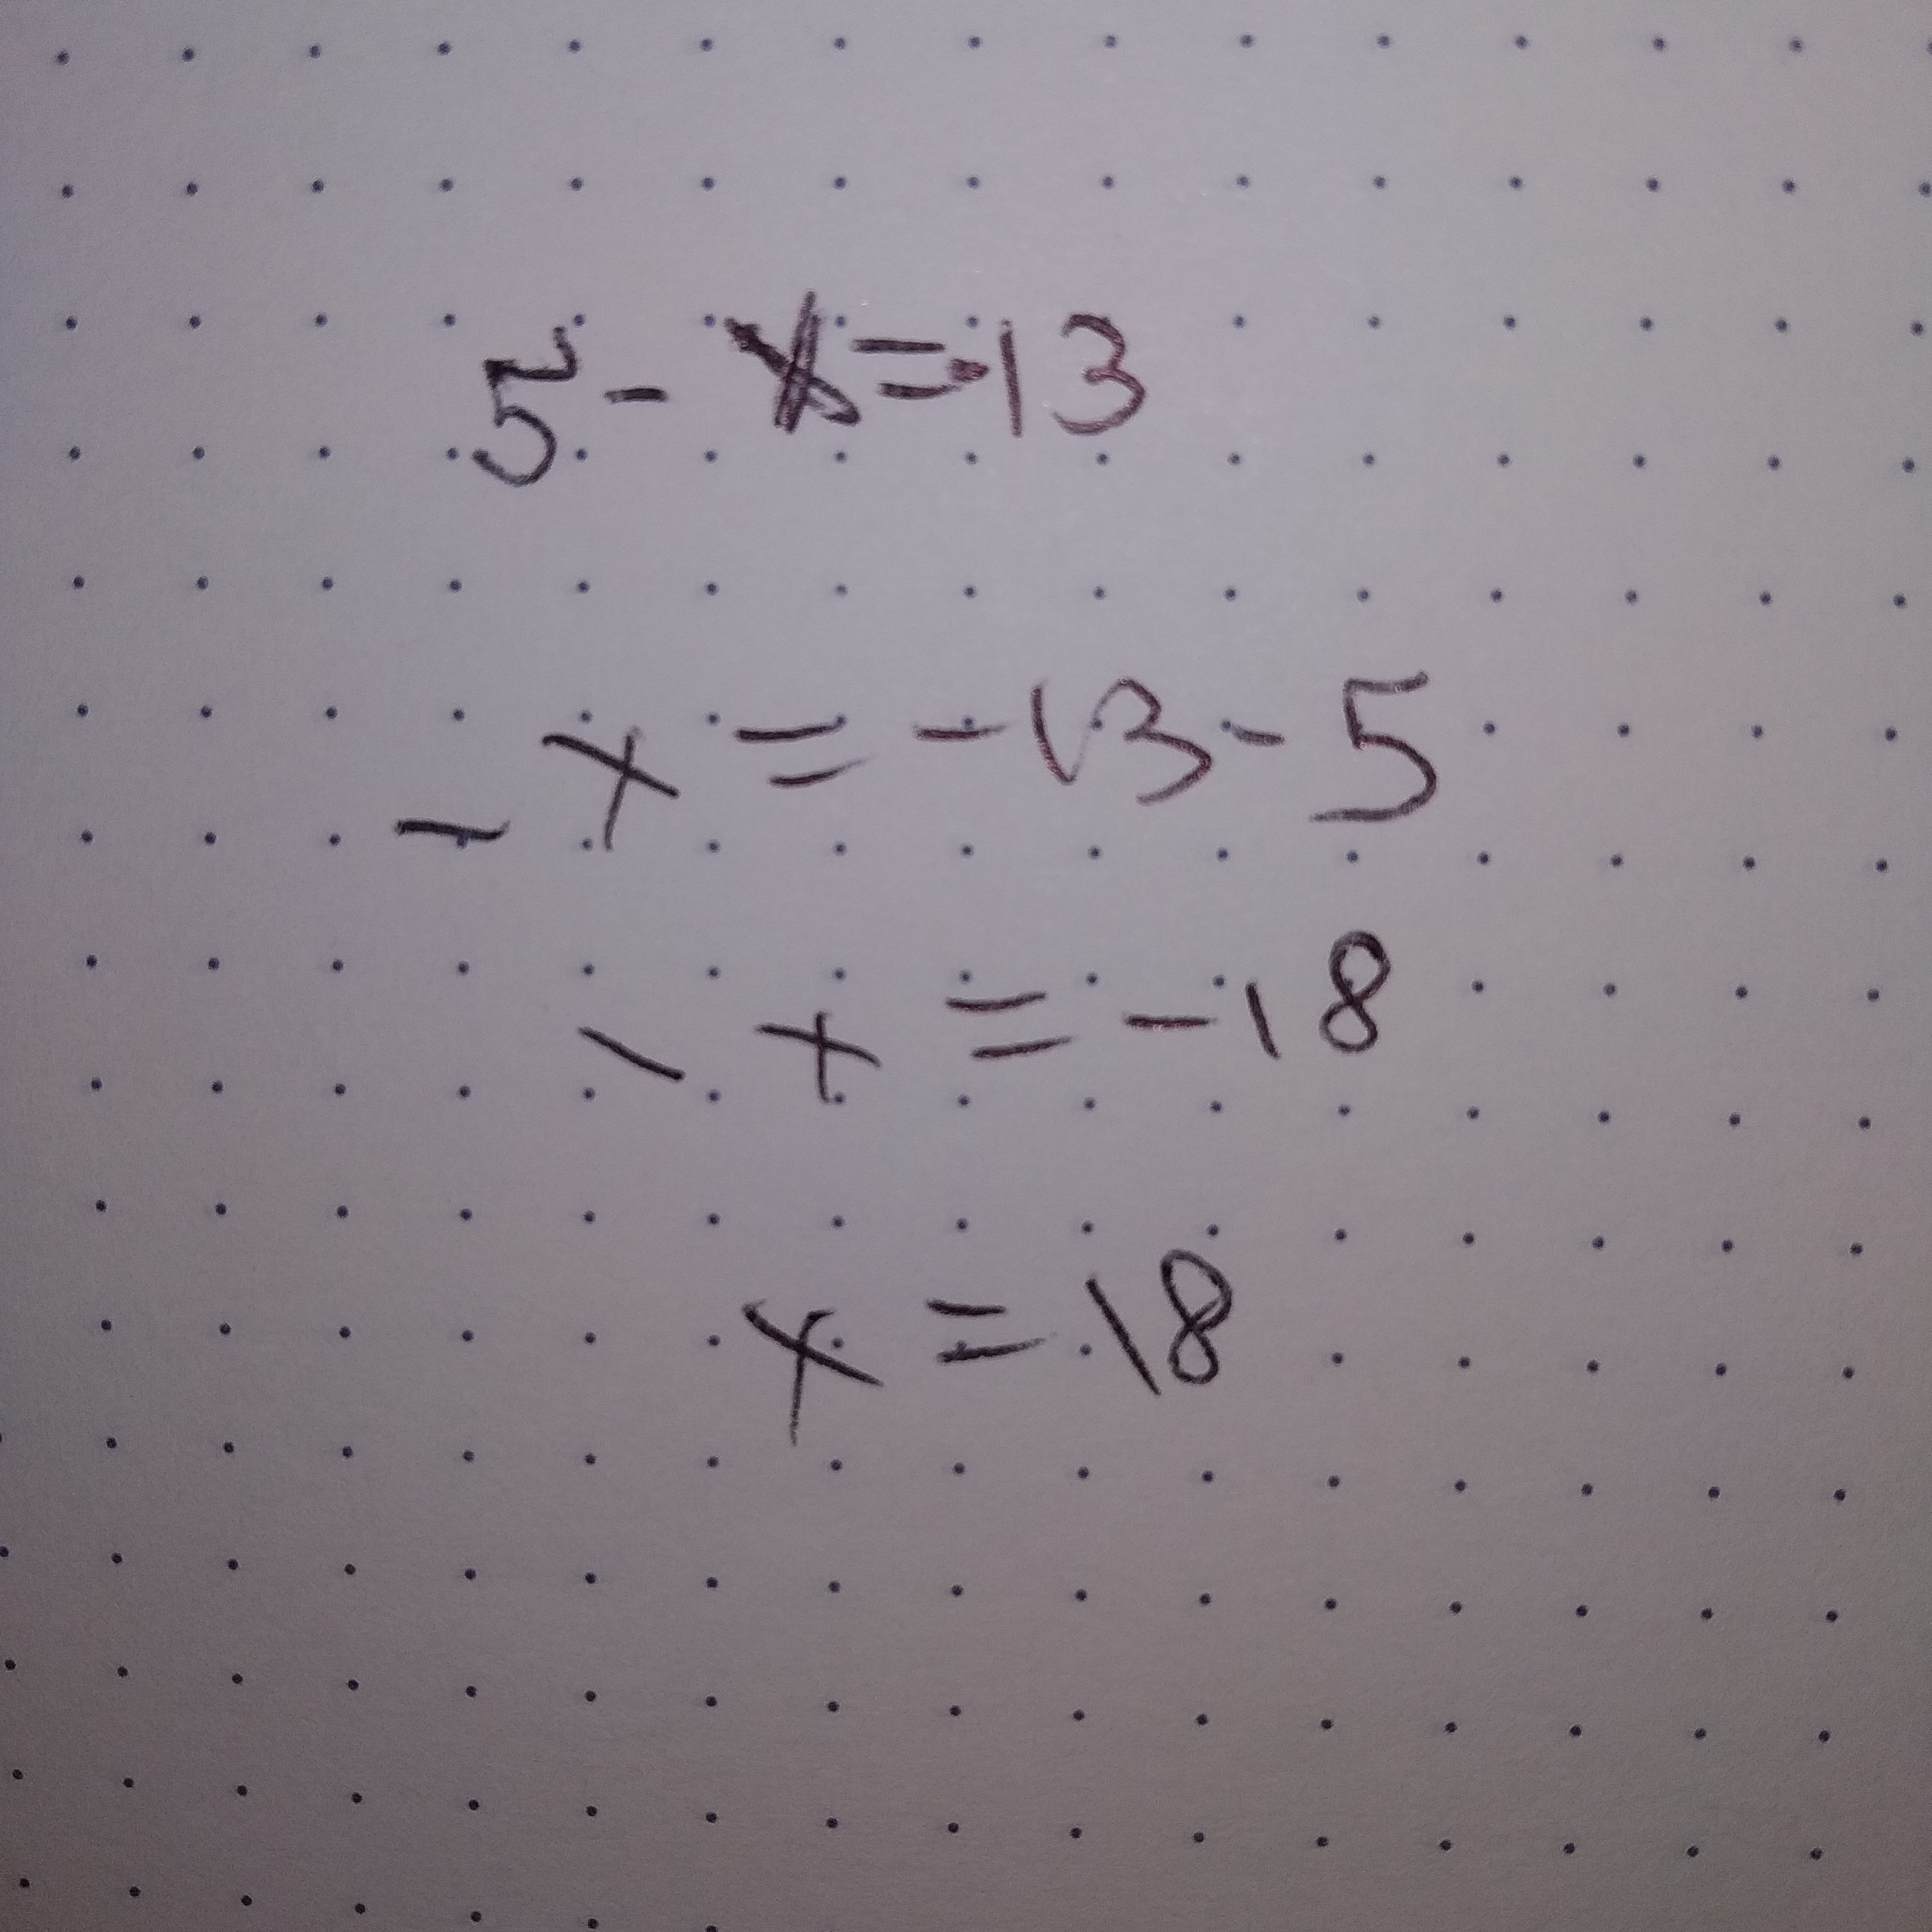 5 - x = -13
- x = -13 - 5
- x = -18
x = 18